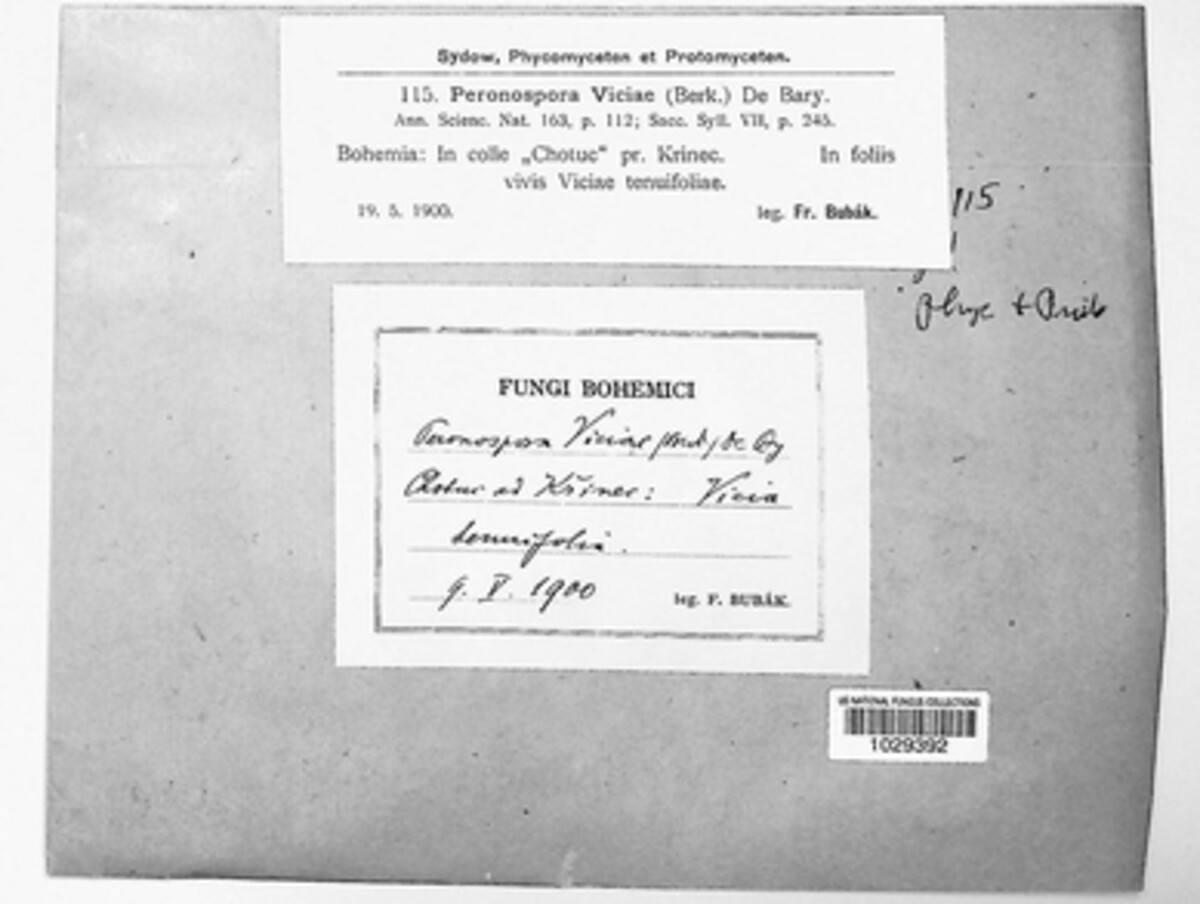 Sydow, Phycomyceten et Protomyceten.
115. Peronospora Viciae (Berk.) De Bary.
Ann. Scienc. Nat. 163, p. 112; Sacc. Syll. VII, p. 245.
Bohemia: In colle „Chotuc" pr. Krinec. In foliis
vivis Viciae tenuifoliae.
19. 5. 1900. leg. Fr. Bubák.
115
Phyc + Prot
FUNGI BOHEMICI
Peronospora Viciae (Berk.) De By
Chotuc ad Křinec: Vicia
tenuifolia.
9. V. 1900 leg. F. BUBÁK.
US NATIONAL FUNGUS COLLECTIONS
1029392